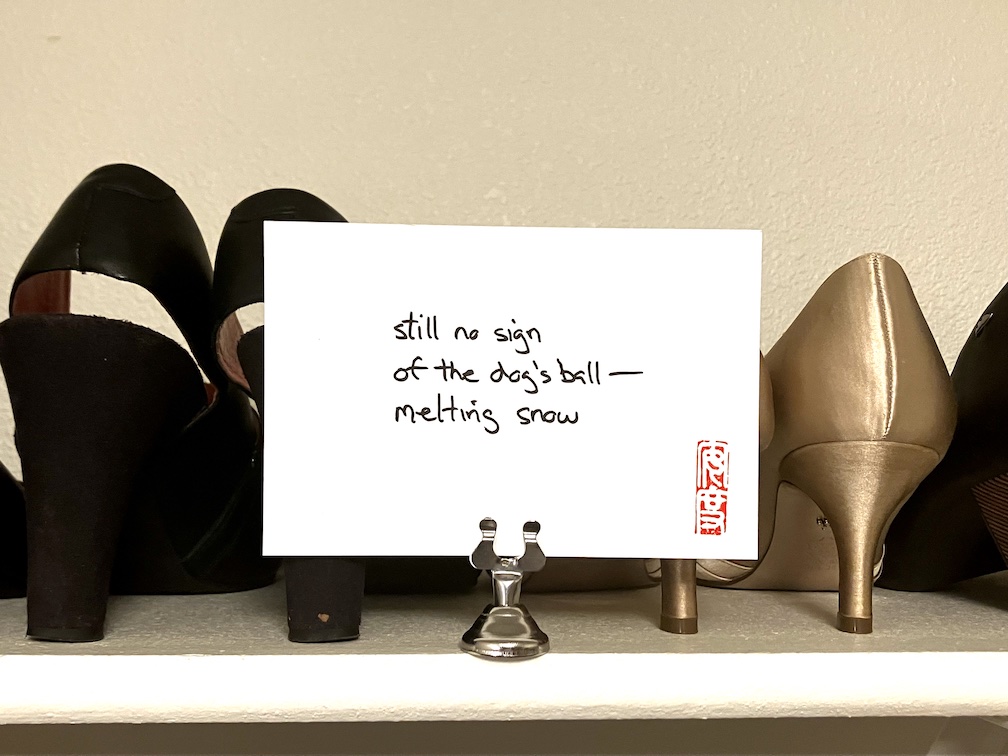 still no sign
of the dog's ball —
melting snow